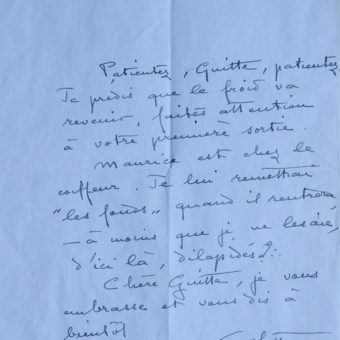 Patientez, Guitte, patientez
Je prédis que le froid va
revenir, faites attention
à votre première sortie.
Maurice est chez le
coiffeur. Je lui remettrai
"les fonds" quand il rentrera,
— à moins que je ne les aie,
d'ici là, dilapidés?..
Chère Guitte, je vous
embrasse et vous dis à
bientôt